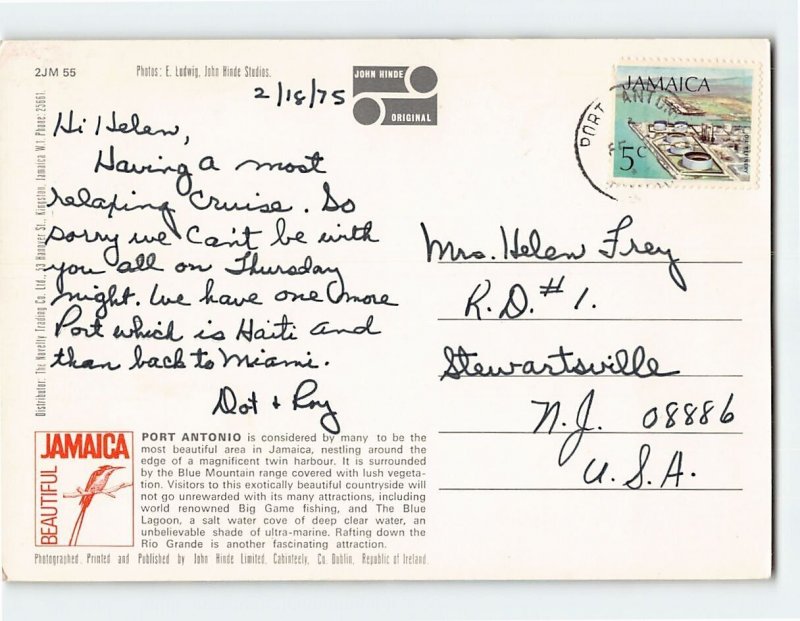 2JM 55
Photos: E. Ludwig, John Hinde Studios.
JOHN HINDE
ORIGINAL
2/18/75
Hi Helen,
Having a most
relaxing Cruise. So
sorry we Can't be with
you all on Thursday
night. We have one more
Port which is Haiti and
than back to Miami.
Dot & Roy
JAMAICA
5c
PORT ANTON
Mrs. Helen Frey
R.D. #1.
Stewartsville
N.J. 08886
U.S.A.
Distributor: The Novelty Trading Co. Ltd., 53 Hanover St., Kingston, Jamaica W.I. Phone: 25661.
BEAUTIFUL JAMAICA
PORT ANTONIO is considered by many to be the
most beautiful area in Jamaica, nestling around the
edge of a magnificent twin harbour. It is surrounded
by the Blue Mountain range covered with lush vegeta-
tion. Visitors to this exotically beautiful countryside will
not go unrewarded with its many attractions, including
world renowned Big Game fishing, and The Blue
Lagoon, a salt water cove of deep clear water, an
unbelievable shade of ultra-marine. Rafting down the
Rio Grande is another fascinating attraction.
Photographed, Printed and Published by John Hinde Limited, Cabinteely, Co. Dublin, Republic of Ireland.